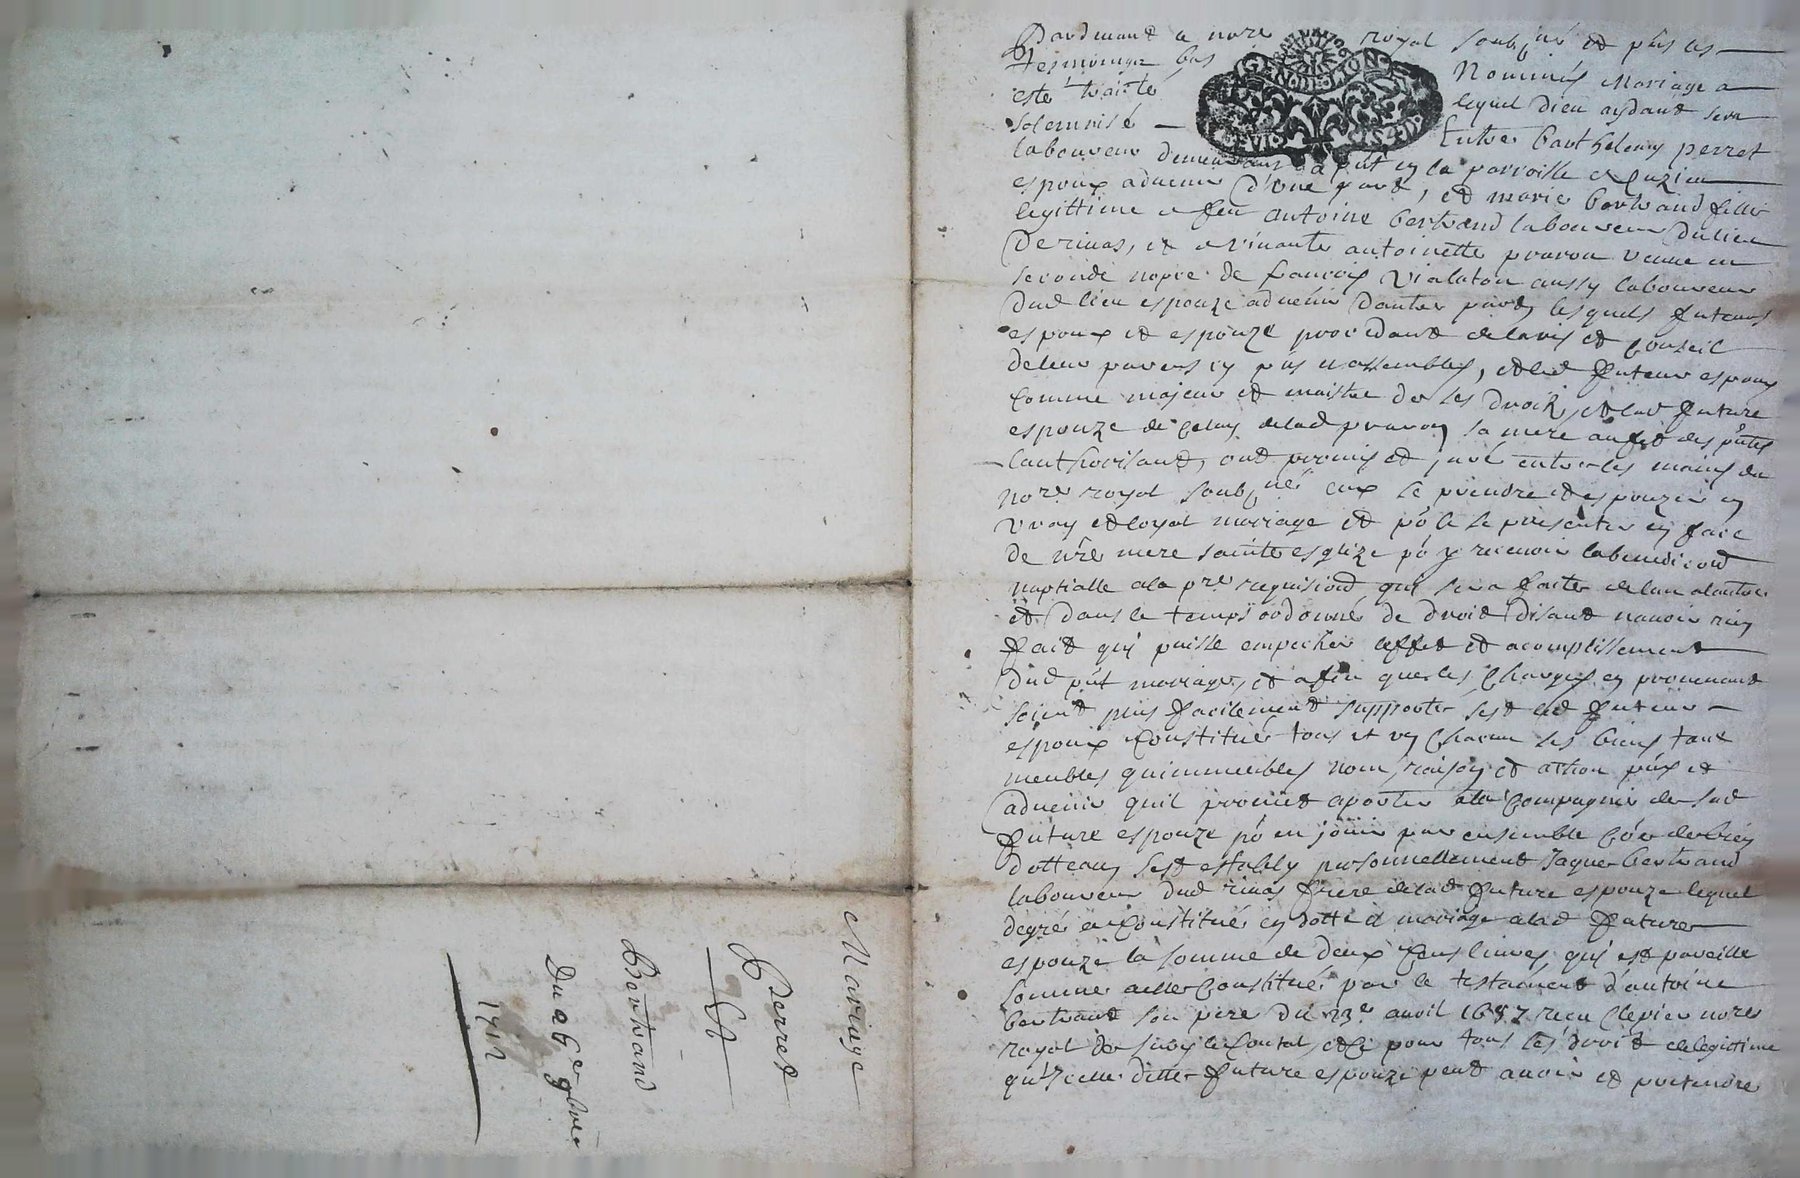 Pardevant le no.re royal soubz.né et p̃ns les
tesmoings bas Nommés Mariage a
esté traité lequel dieu aydant sera
solemnisé — Entre barthelemy perret
laboureur demeurant a
espoux advenir d'une part, et marie bertrand fille
legittime a feu antoine bertrand laboureur dulieu
De rivas, et a vivante antoinette pravon veuve en
seconde nopce de francois vialaton aussy laboureur
dud lieu espouze advenir dautre part, lesquels futeurs
espoux et espouze procedant de lavis et conseil
deleur parens icy p̃ns et assemblés, et led futeur espoux
comme majeur et maistre de ses droitz, et lad future
espouze de celuy delad pravon sa mere au fet des p̃ntes
lauthorisant, ont promis et juré entre les mains du
no.re royal soubz.né eux se prendre et espouzer en
vray et loyal mariage et po.r ce se presenter en face
de n̄re mere sainte esglize po.r y recevoir la benediō̄n
nuptialle ala p.re requisiō̄n qui sera faite de lun alautre
et dans le temps ordonné de droit Disant navoir rien
fait qui puisse empecher leffet et acomplissement
Dud p̃nt mariage, et afin que les charges en provenant
soient plus facilement supportés sest led futeur
espoux constitué tous et un chacun ses biens tant
meubles quimmeubles nom, raison et action p̃ns et
advenir quil promet aporter ala compagnie de sad
future espouze po.r en jouir par ensemble
dotteaux sest estably personnellement Jaque bertrand
laboureur dud rivas frere delad future espouze lequel
degré a constitué en dotte et mariage alad future
espouze la somme de deux cens livres, qui est pareille
somme aelle constitué par le testament d'antoine
bertrand son pere du 23.e avril 1697 receu Clepier no.re
royal de sury le contal, et ce pour tous les droit de legittime
qu'icelle ditte future espouze peut avoir et pretendre
Mariage
Perret
et
Bertrand
Du 26.e 9bre
1712
GEN DE LYON